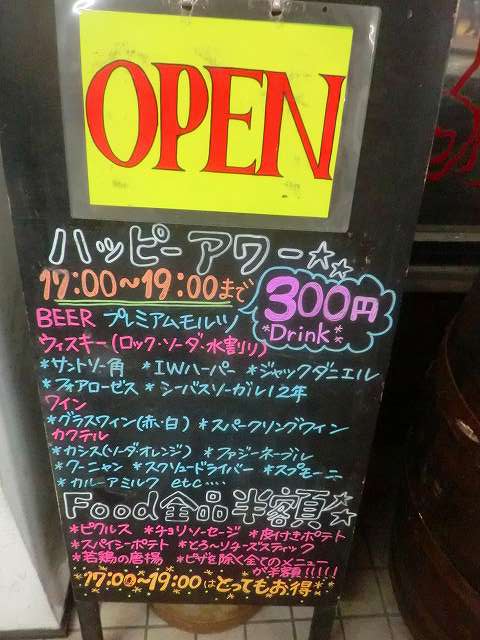 OPEN
ハッピーアワー☆☆
17:00～19:00まで
300円
*Drink*
BEER プレミアムモルツ
ウィスキー(ロック・ソーダ・水割り)
*サントリー角 *IWハーパー *ジャックダニエル
*フォアローゼス *シーバスリーガル12年
ワイン
*グラスワイン(赤・白) *スパークリングワイン
カクテル
*カシス(ソーダ・オレンジ) *ファジーネーブル
*クーニャン *スクリュードライバー *スプモーニ
*カルーアミルク etc....
Food全品半額☆☆
*ピクルス *チョリソーセージ *皮付きポテト
*スパイシーポテト *とろ～りチーズスティック
*若鶏の唐揚 *ピザを除く全てのメニュー
が半額!!!!!
17:00～19:00はとってもお得